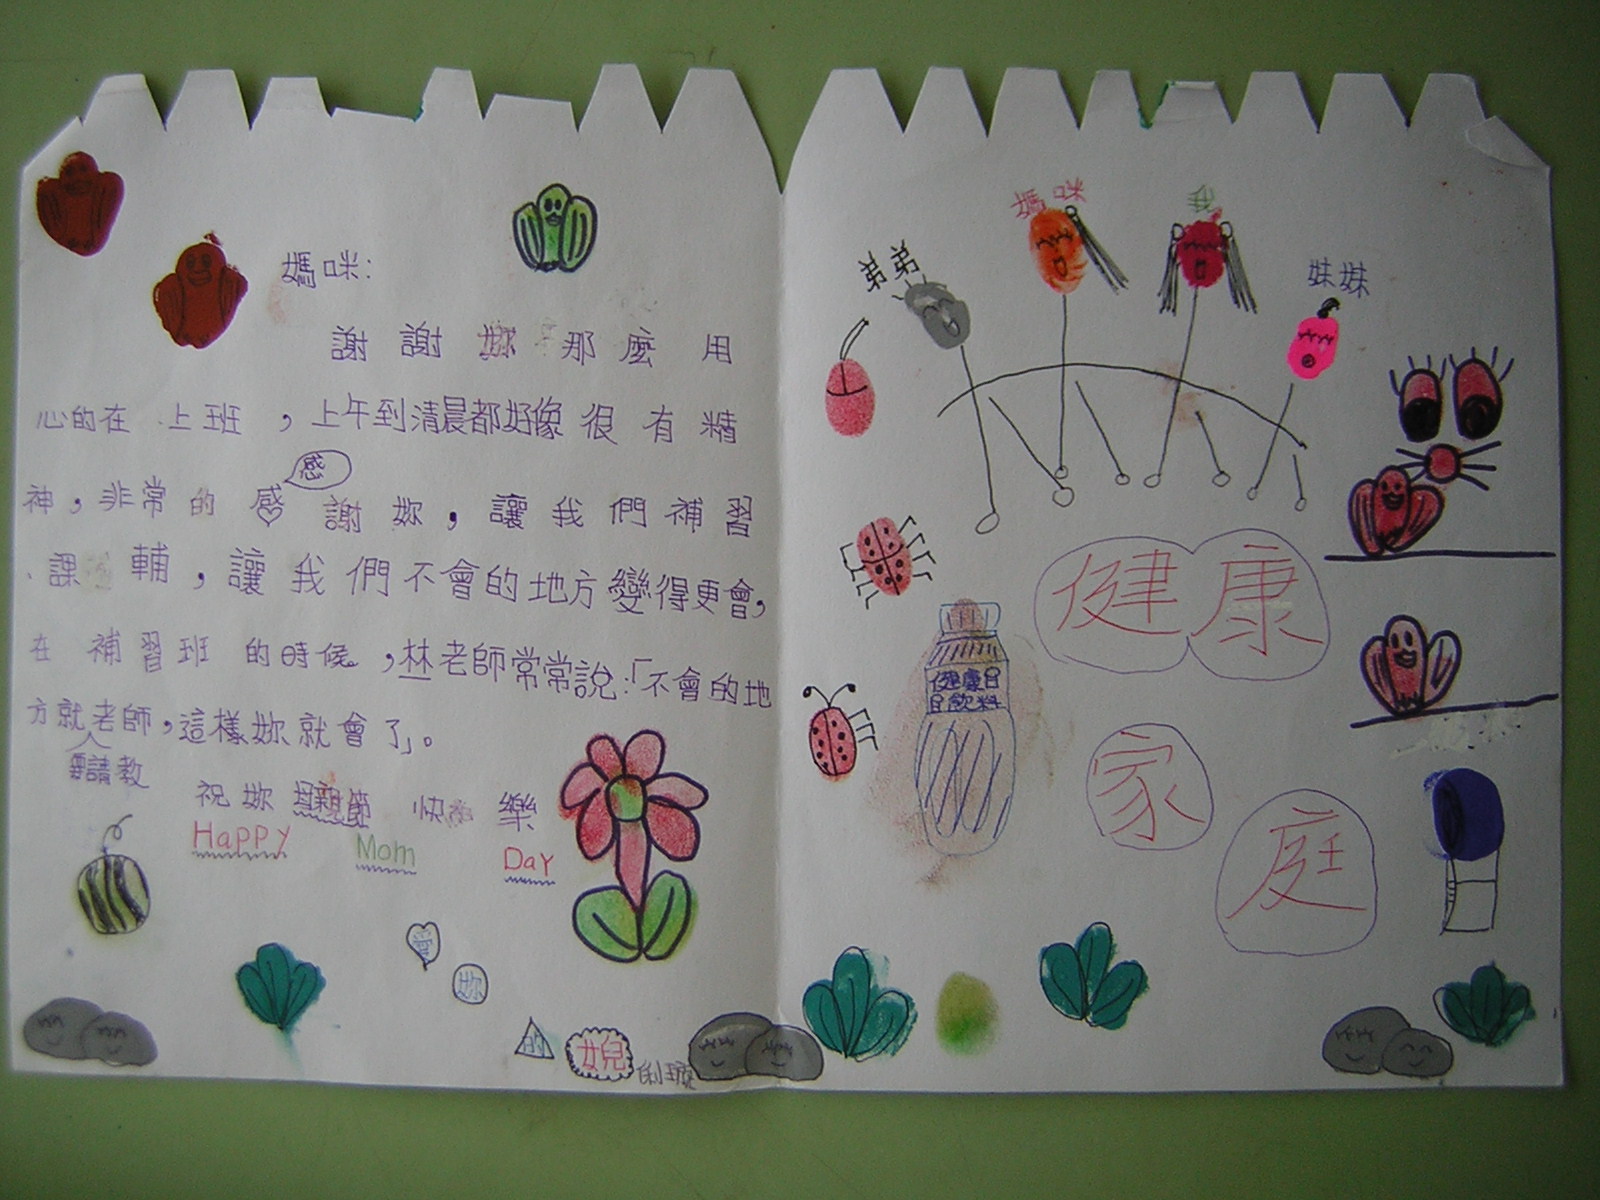 媽咪:
謝謝妳那麼用
心的在上班，上午到清晨都好像很有精
神，非常的感謝妳，讓我們補習
感
課輔，讓我們不會的地方變得更會，
在補習班的時候，林老師常常說:「不會的地
方就老師，這樣妳就會了」。
要請教
祝妳母親節快樂
Happy Mom Day
愛
妳
的
女兒
媽咪
我
弟弟
妹妹
健康
健康日
日飲料
家
庭